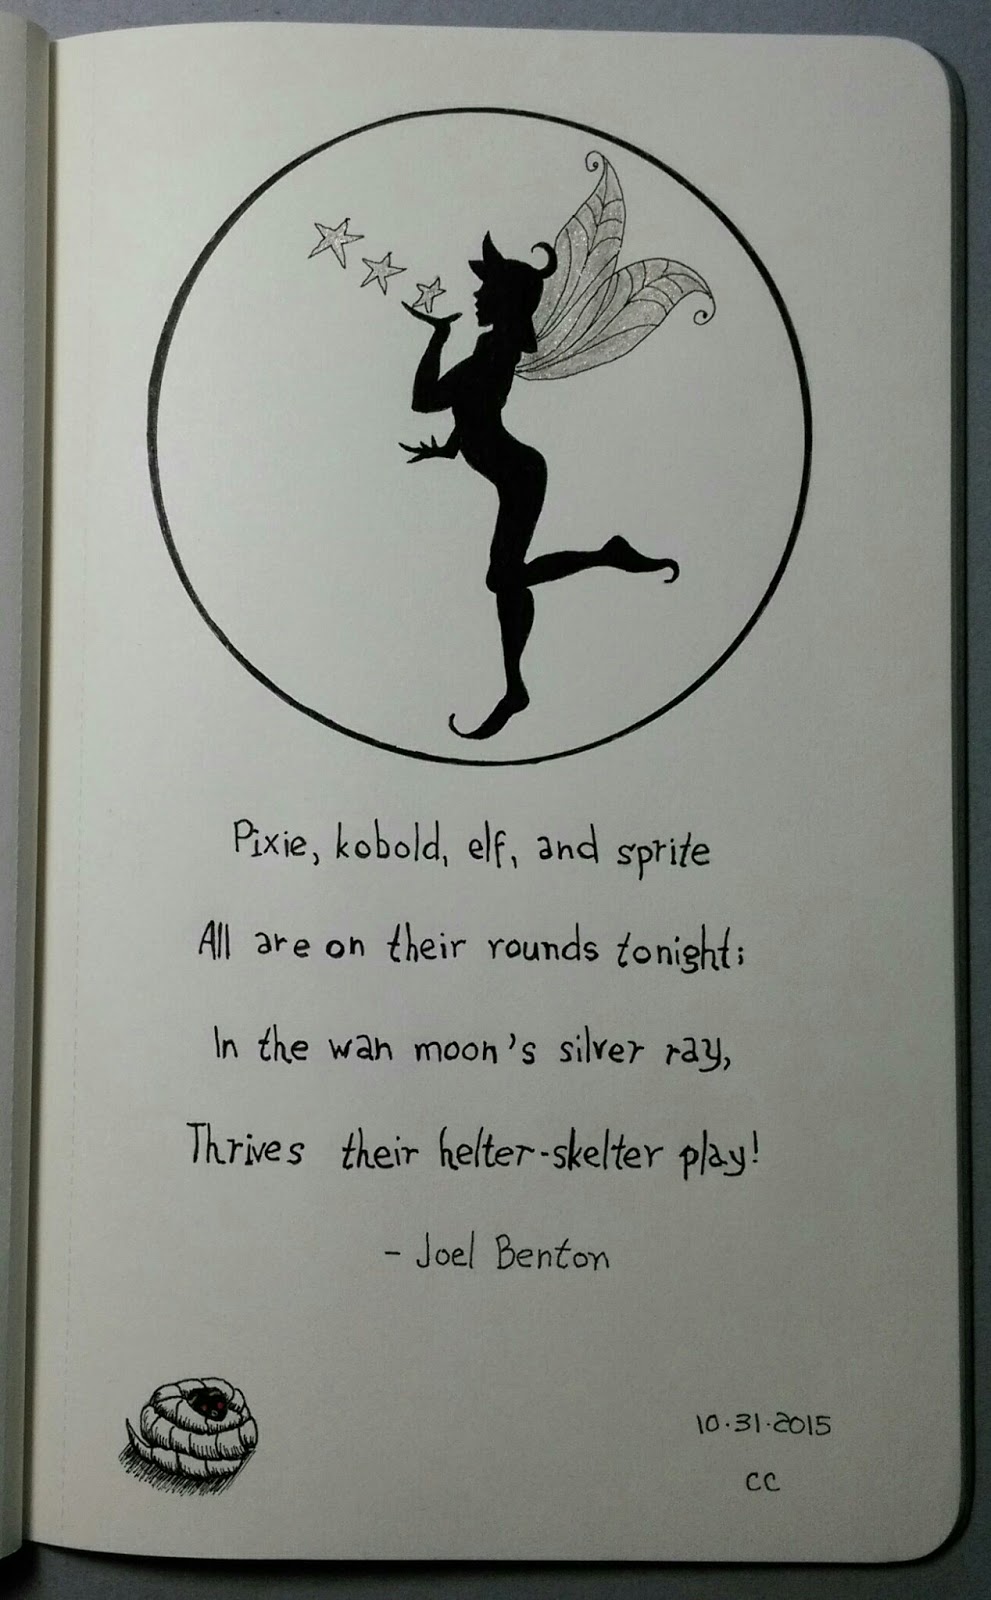 Pixie, kobold, elf, and sprite
All are on their rounds tonight;
In the wan moon's silver ray,
Thrives their helter-skelter play!
- Joel Benton
10.31.2015
CC